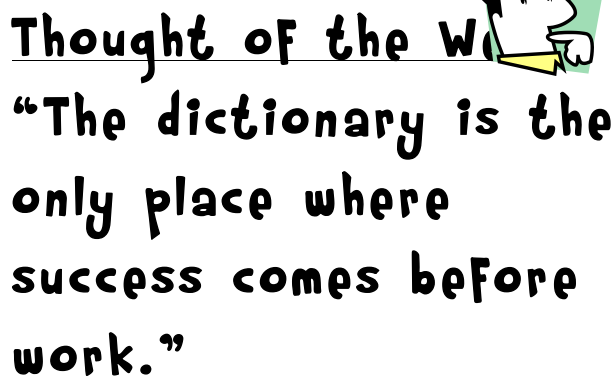 Thought of the
“The dictionary is the
only place where
success comes before
work.”